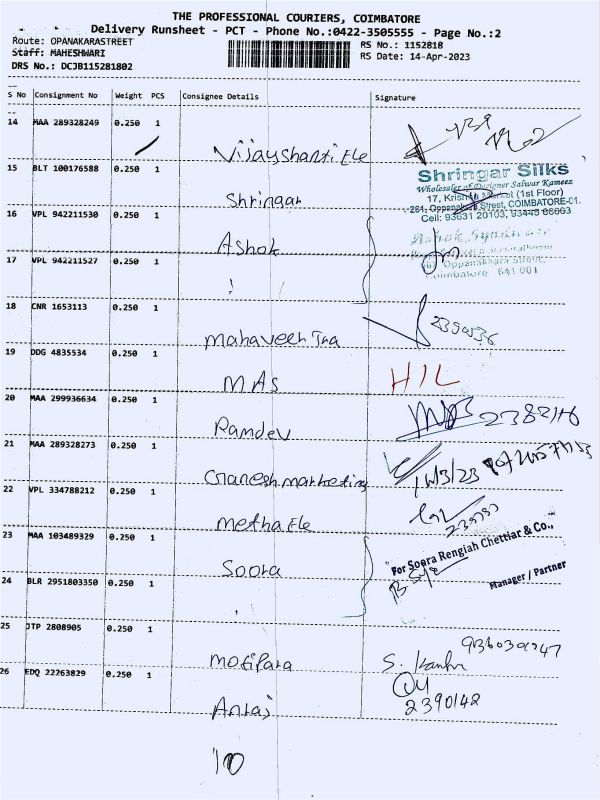 THE PROFESSIONAL COURIERS, COIMBATORE
Delivery Runsheet - PCT - Phone No.:0422-3505555 - Page No.:2
Route: OPANAKARASTREET
Staff: MAHESHWARI
DRS No.: DCJB115281802
RS No.: 1152818
RS Date: 14-Apr-2023
S No Consignment No Weight PCS Consignee Details Signature
14 MAA 289328249 0.250 1
Vijayshanti Ele
15 BLT 100176588 0.250 1
Shringar
Shringar Silks
Wholesaler of Designer Salwar Kameez
17, Krishna Market (1st Floor)
261, Oppanakara Street, COIMBATORE-01.
Cell: 93631 20103, 93445 66663
16 VPL 942211530 0.250 1
Ashok
17 VPL 942211527 0.250 1
Oppanakkara Street,
Coimbatore 641 001
18 CNR 1653113 0.250 1
Mahaveer Tra
2390536
19 DDG 4835534 0.250 1
MAS
HIL
20 MAA 299936634 0.250 1
Ramdev
21 MAA 289328273 0.250 1
Ganesh marketing
22 VPL 334788212 0.250 1
Metha Ele
23 MAA 103489329 0.250 1
Soora
For Soora Rengiah Chettiar & Co.,
Manager / Partner
24 BLR 2951803350 0.250 1
25 JTP 2808905 0.250 1
Motipara
26 EDQ 22263829 0.250 1
2390142